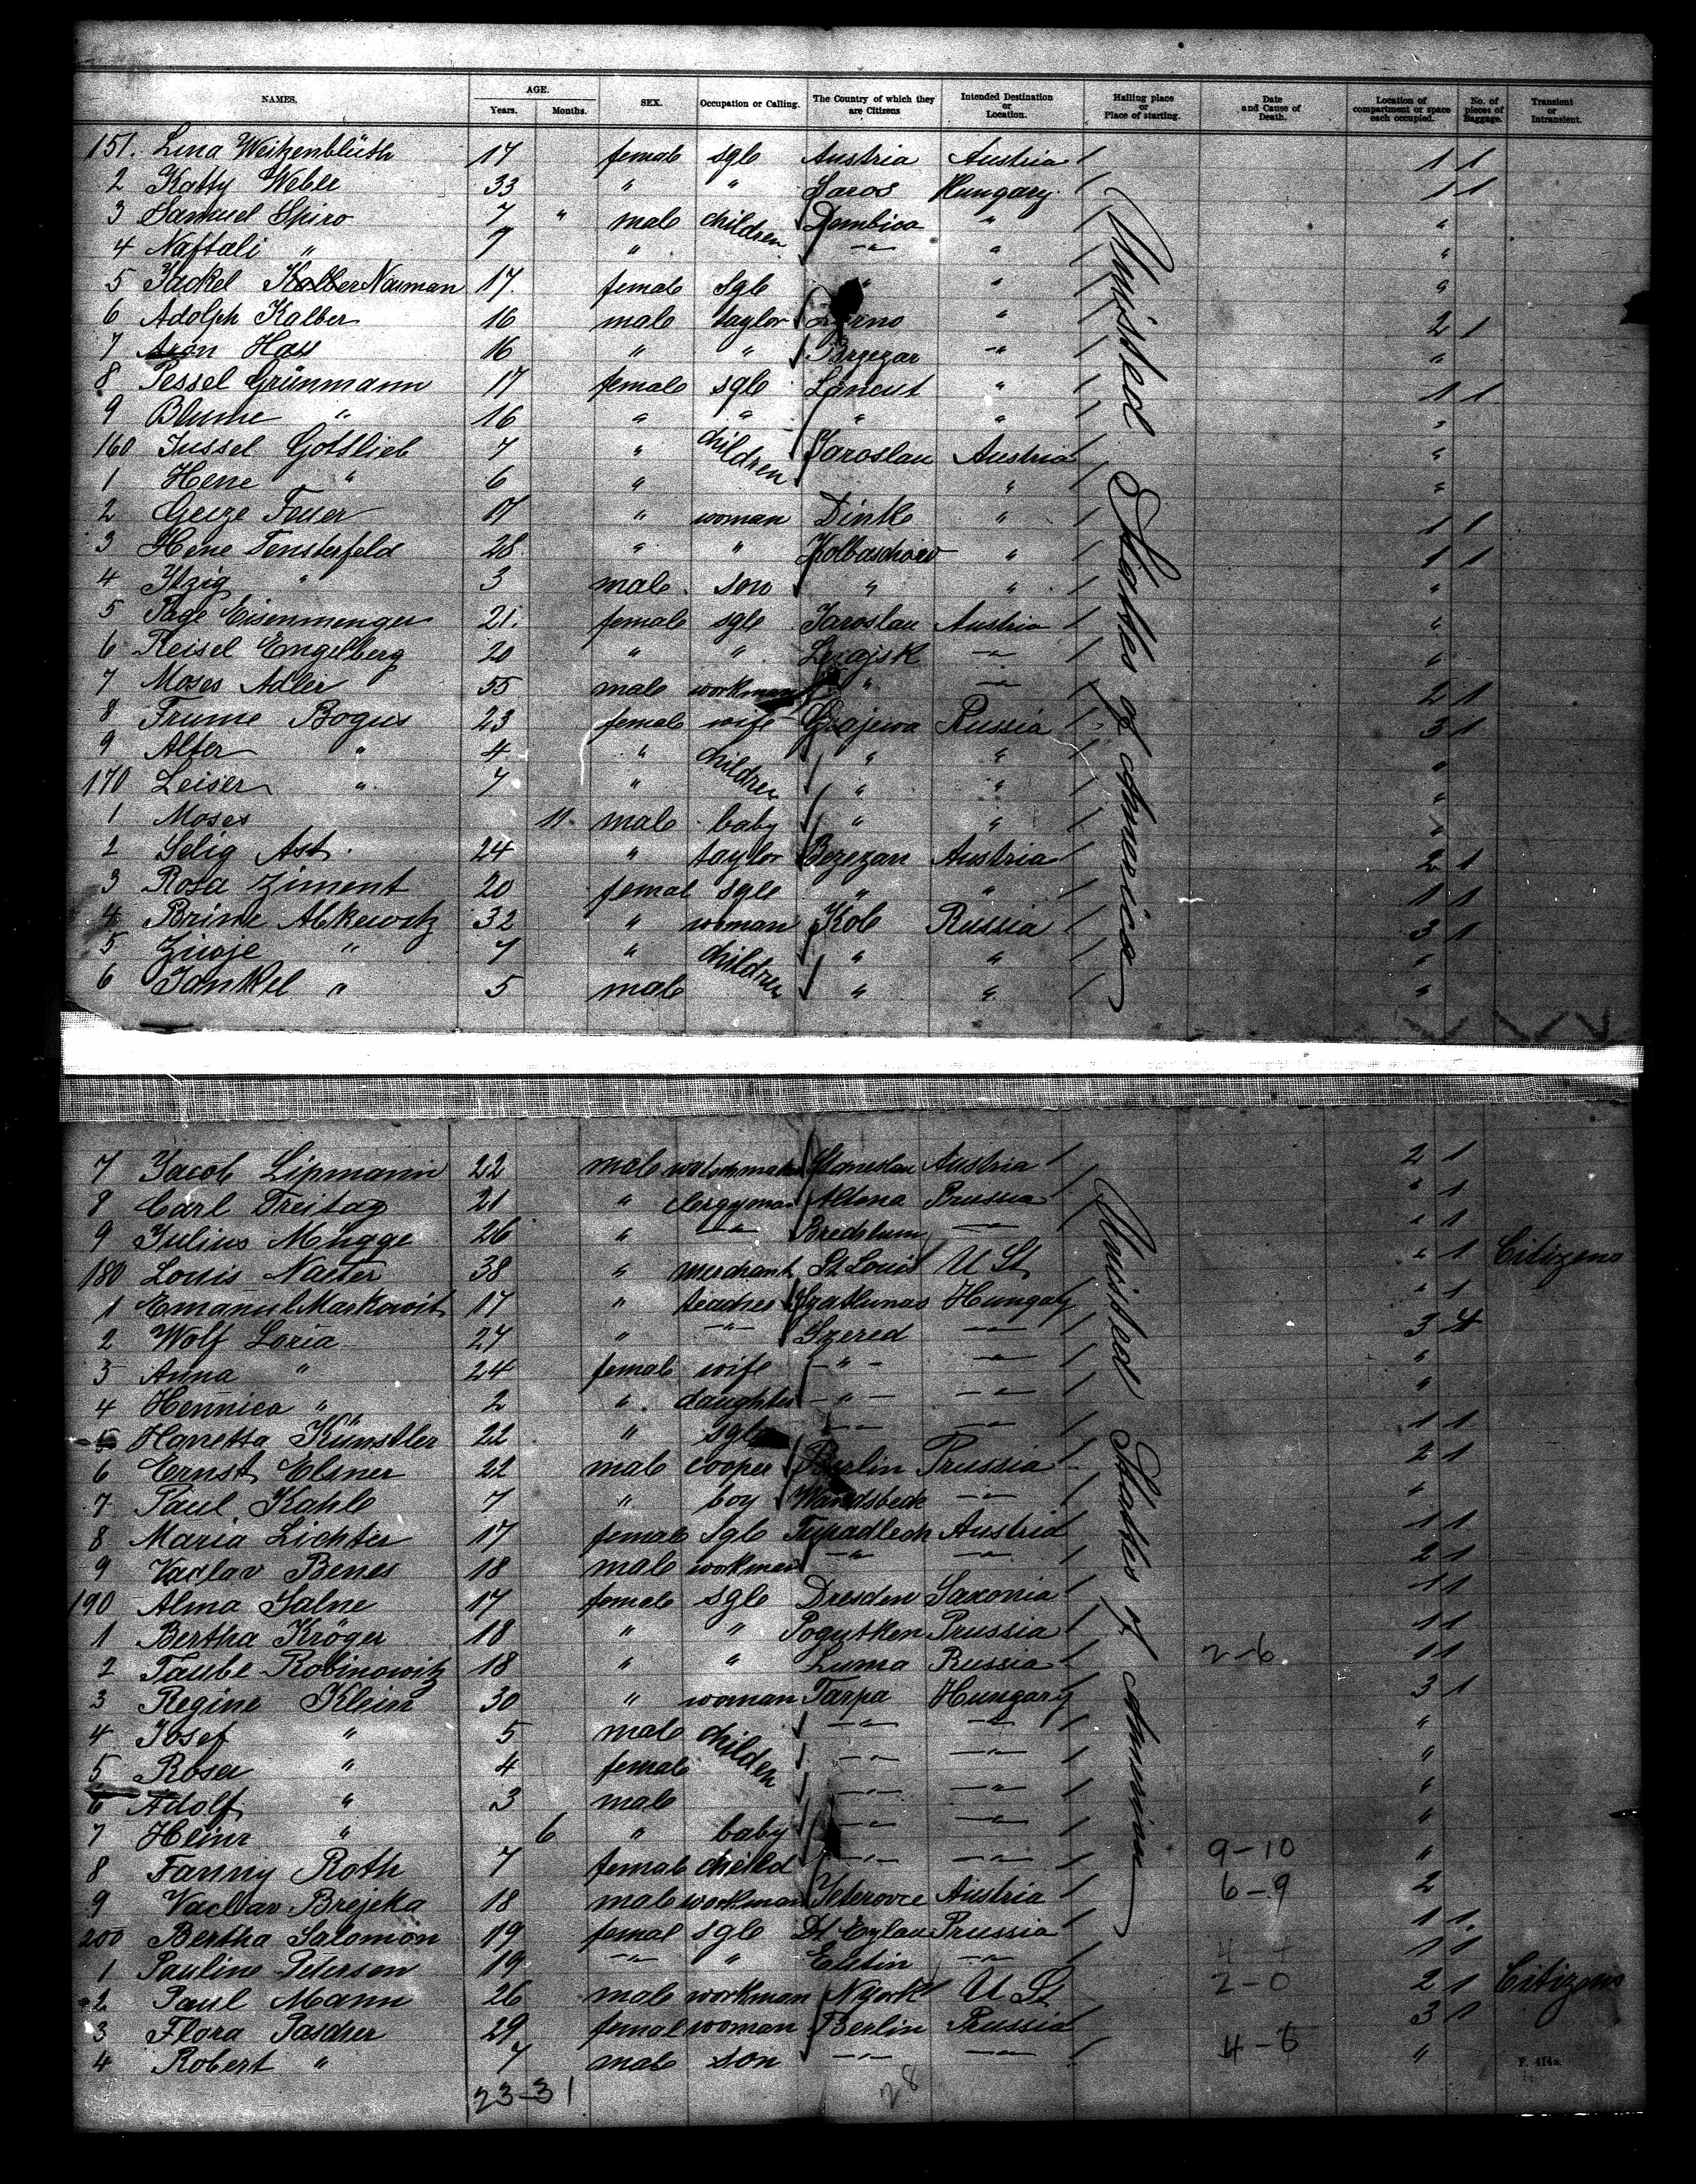 NAMES. AGE. Years. Months. SEX. Occupation or Calling. The Country of which they are Citizens Intended Destination or Location. Hailing place or Place of starting. Date and Cause of Death. Location of compartment or space each occupied. No. of pieces of Baggage. Transient or Intransient.
151. Lina Weitzenblüth 17 female sgle Austria Austria 1 1
2 Katty Weble 33 " " Saros Hungary 1 1
3 Samuel Spiro 7 " male children Dembica " "
4 Naftali " 7 " -"- " "
5 Jackel Kalber Nauman 17 female sgle " " "
6 Adolph Kalber 16 male taylor " 2 1
7 Aron Hass 16 " " -"- "
8 Pessel Grünmann 17 female sgle Lancut " 1 1
9 Blume " 16 " " " " "
160 Jussel Gottlieb 7 " children Jaroslau Austria "
1 Hene " 6 " " "
2 Geize Feuer 17 " woman " 1 1
3 Hene Fensterfeld 28 " " Kolbaschow " 1 1
4 Itzig " 3 male son " " "
5 Page Eisenmenger 21. female sgle Jaroslau Austria "
6 Reisel Engelberg 20 " " Lezajsk -"- "
7 Moses Adler 55 male workman " -"- 2 1
8 Frume Bogus 23 female wife Grajewa Russia 3 1
9 Alter " 4 " children " " "
170 Leiser " 7 " " " "
1 Moses 11 male baby " " "
2 Selig Ast. 24 " taylor Bezezan Austria 2 1
3 Rosa Ziment 20 femal sgle " " 1 1
4 Brime Abkewitz 32 " woman Kob Russia 3 1
5 " 7 " children " " "
6 Jankel " 5 male " " "
United States of America
7 Jacob Lipmann 22 male watchmaker Staneslau Austria 2 1
8 Carl Freitag 21 " clergyman Altona Prussia " 1
9 Julius Mügge 26 " -"- -"- " 1
180 Louis Naeter 38 " merchant St Louis U St " 1 Citizens
1 Emanuel Markowit 17 " teacher Hungary " 1
2 Wolf Loria 27 " -"- Szered -"- 3 4
3 Anna " 24 female wife -"- -"- "
4 Hennica " 2 " daughter -"- -"- "
5 Hanetta Künstler 22 " sgle -"- -"- 1 1
6 Ernst Elsner 22 male cooper Berlin Prussia 2 1
7 Paul Kahle 7 " boy Wandsbeck -"- "
8 Maria Lichter 17 female sgle Austria 1 1
9 Vaclav Benes 18 male workman -"- -"- 2 1
190 Alma Salne 17 female sgle Dresden Saxonia 1 1
1 Bertha Kröger 18 " " Pogutken Prussia 1 1
2 Taube Robinowitz 18 " " Luma Russia 2-6 1 1
3 Regine Klein 30 " woman Tarpa Hungary 3 1
4 Josef " 5 male children -"- -"- "
5 Rosa " 4 female -"- -"- "
6 Adolf " 3 male -"- -"- "
7 Heinr " 6 " baby -"- -"- "
8 Fanny Roth 7 female child -"- -"- 9-10 "
9 Vaclav Brejcka 18 male workman Austria 6-9 2
200 Bertha Salomon 19 femal sgle Dt Eylau Prussia 1 1
1 Pauline Petersen 19 -"- " Eutin -"- 4-4 1 1
2 Paul Mann 26 male workman N York U St 2-0 2 1 Citizens
3 Flora Pascher 29 femal woman Berlin Prussia 3 1
4 Robert " 7 male son -"- -"- 4-8 "
United States of America
F. 414a.
23-31 28